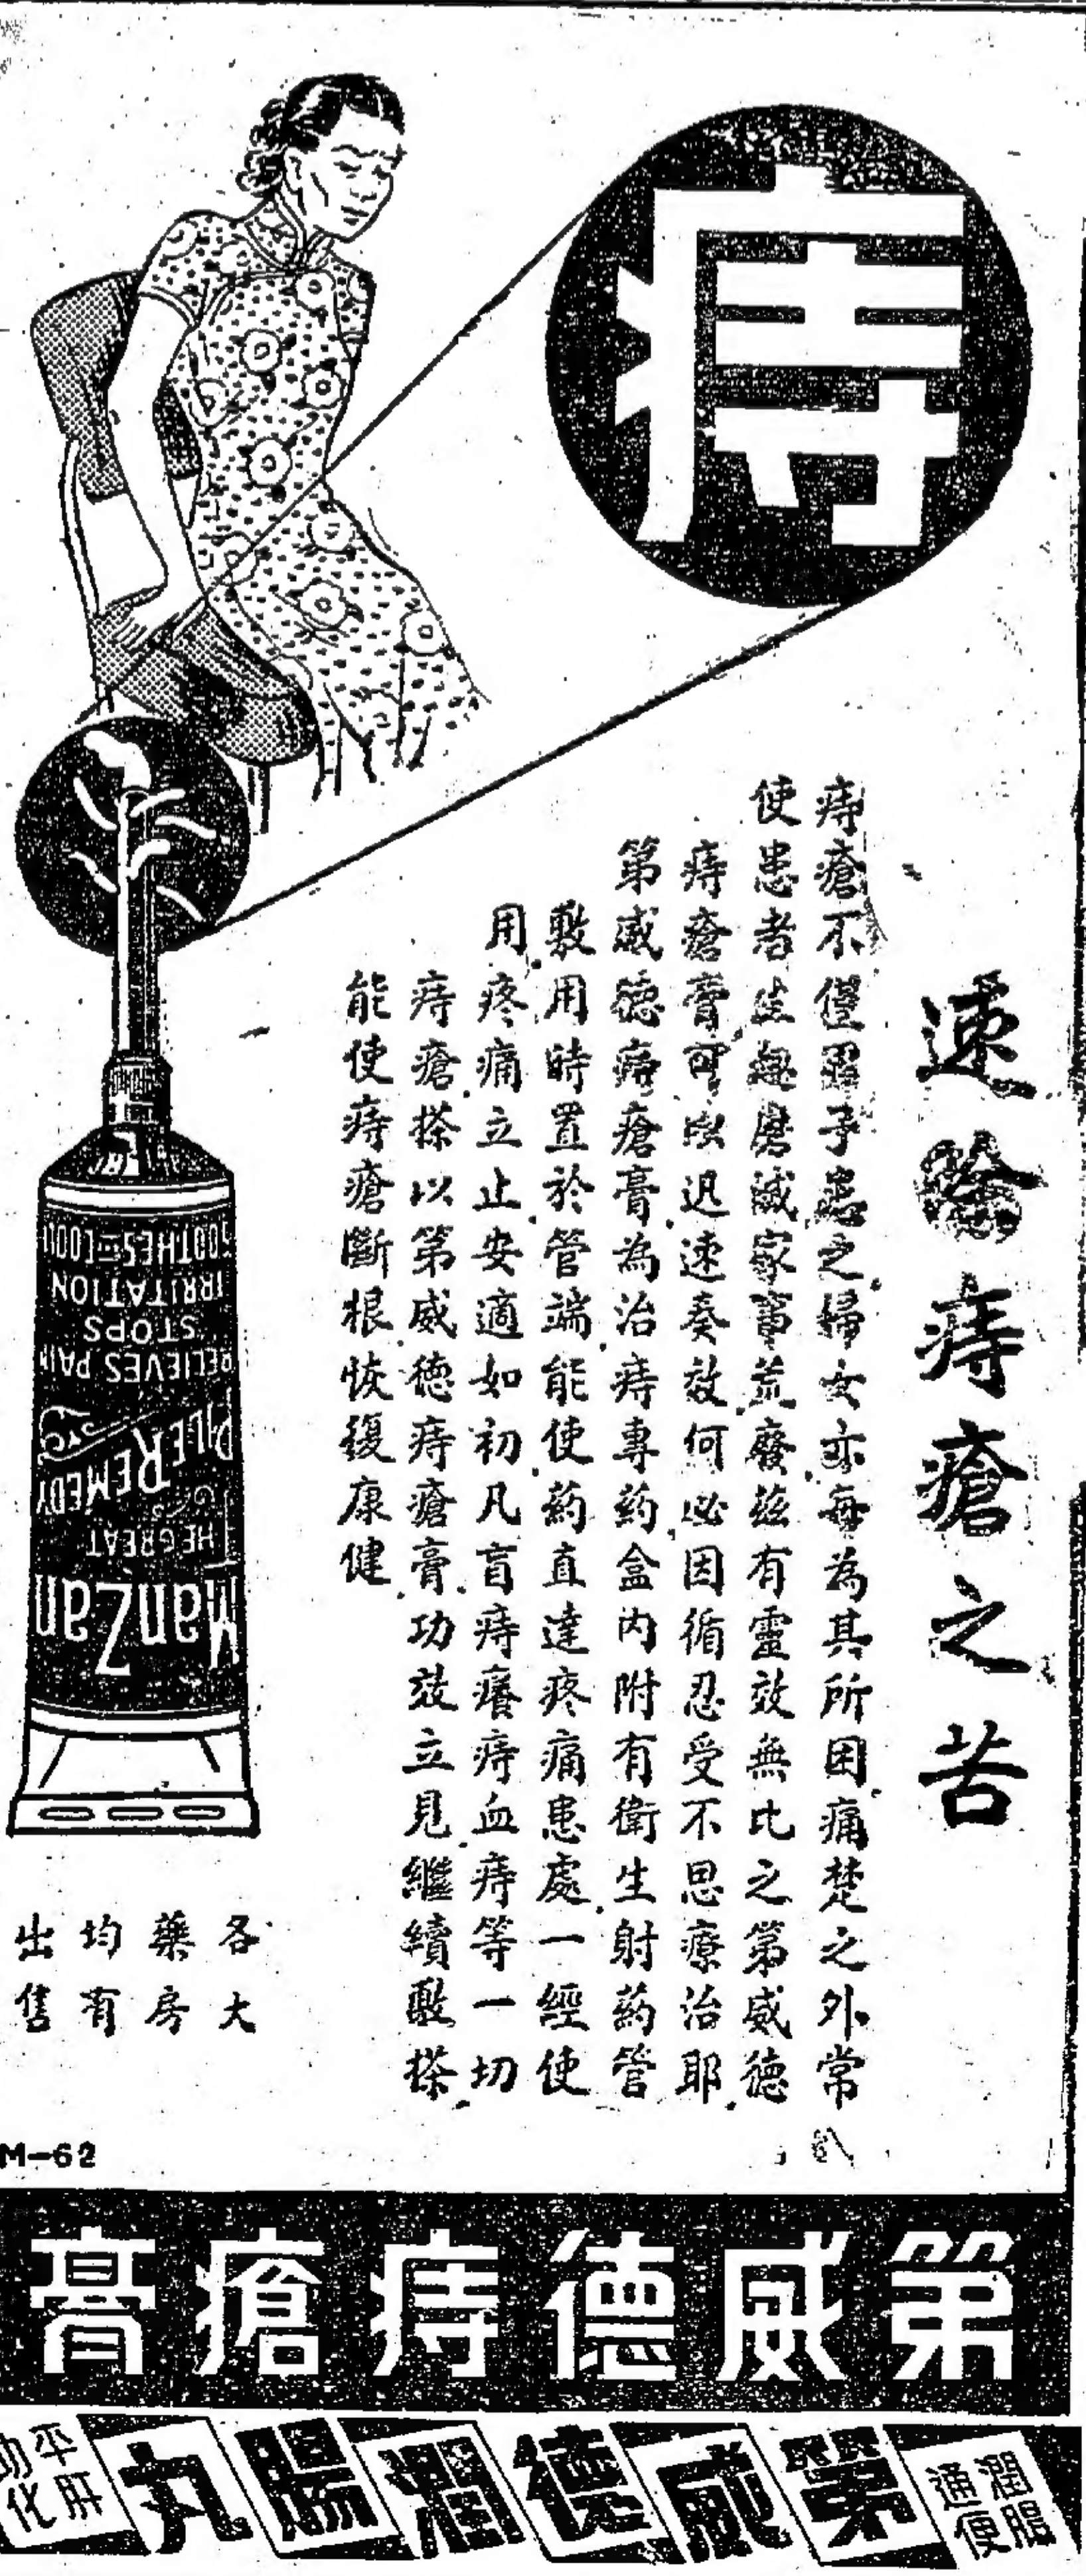 痔
速除痔瘡之苦
痔瘡不僅男子患之婦女亦每為其所困痛楚之外常
使患者生趣磨滅家事荒廢茲有靈效無比之第威德
痔瘡膏可以迅速奏效何必因循忍受不思療治耶
第威德痔瘡膏為治痔專药盒內附有衛生射药管
敷用時置於管端能使药直達疼痛患處一經使
用疼痛立止安適如初凡盲痔癢痔血痔等一切
痔瘡搽以第威德痔瘡膏功效立見繼續敷搽
能使痔瘡斷根恢復康健
ManZan
THE GREAT
PILE REMEDY
RELIEVES PAIN
STOPS
IRRITATION
各大
藥房
均有
出售
M-62
第威德痔瘡膏
潤腸
通便
第威德潤腸丸
平肝
助化